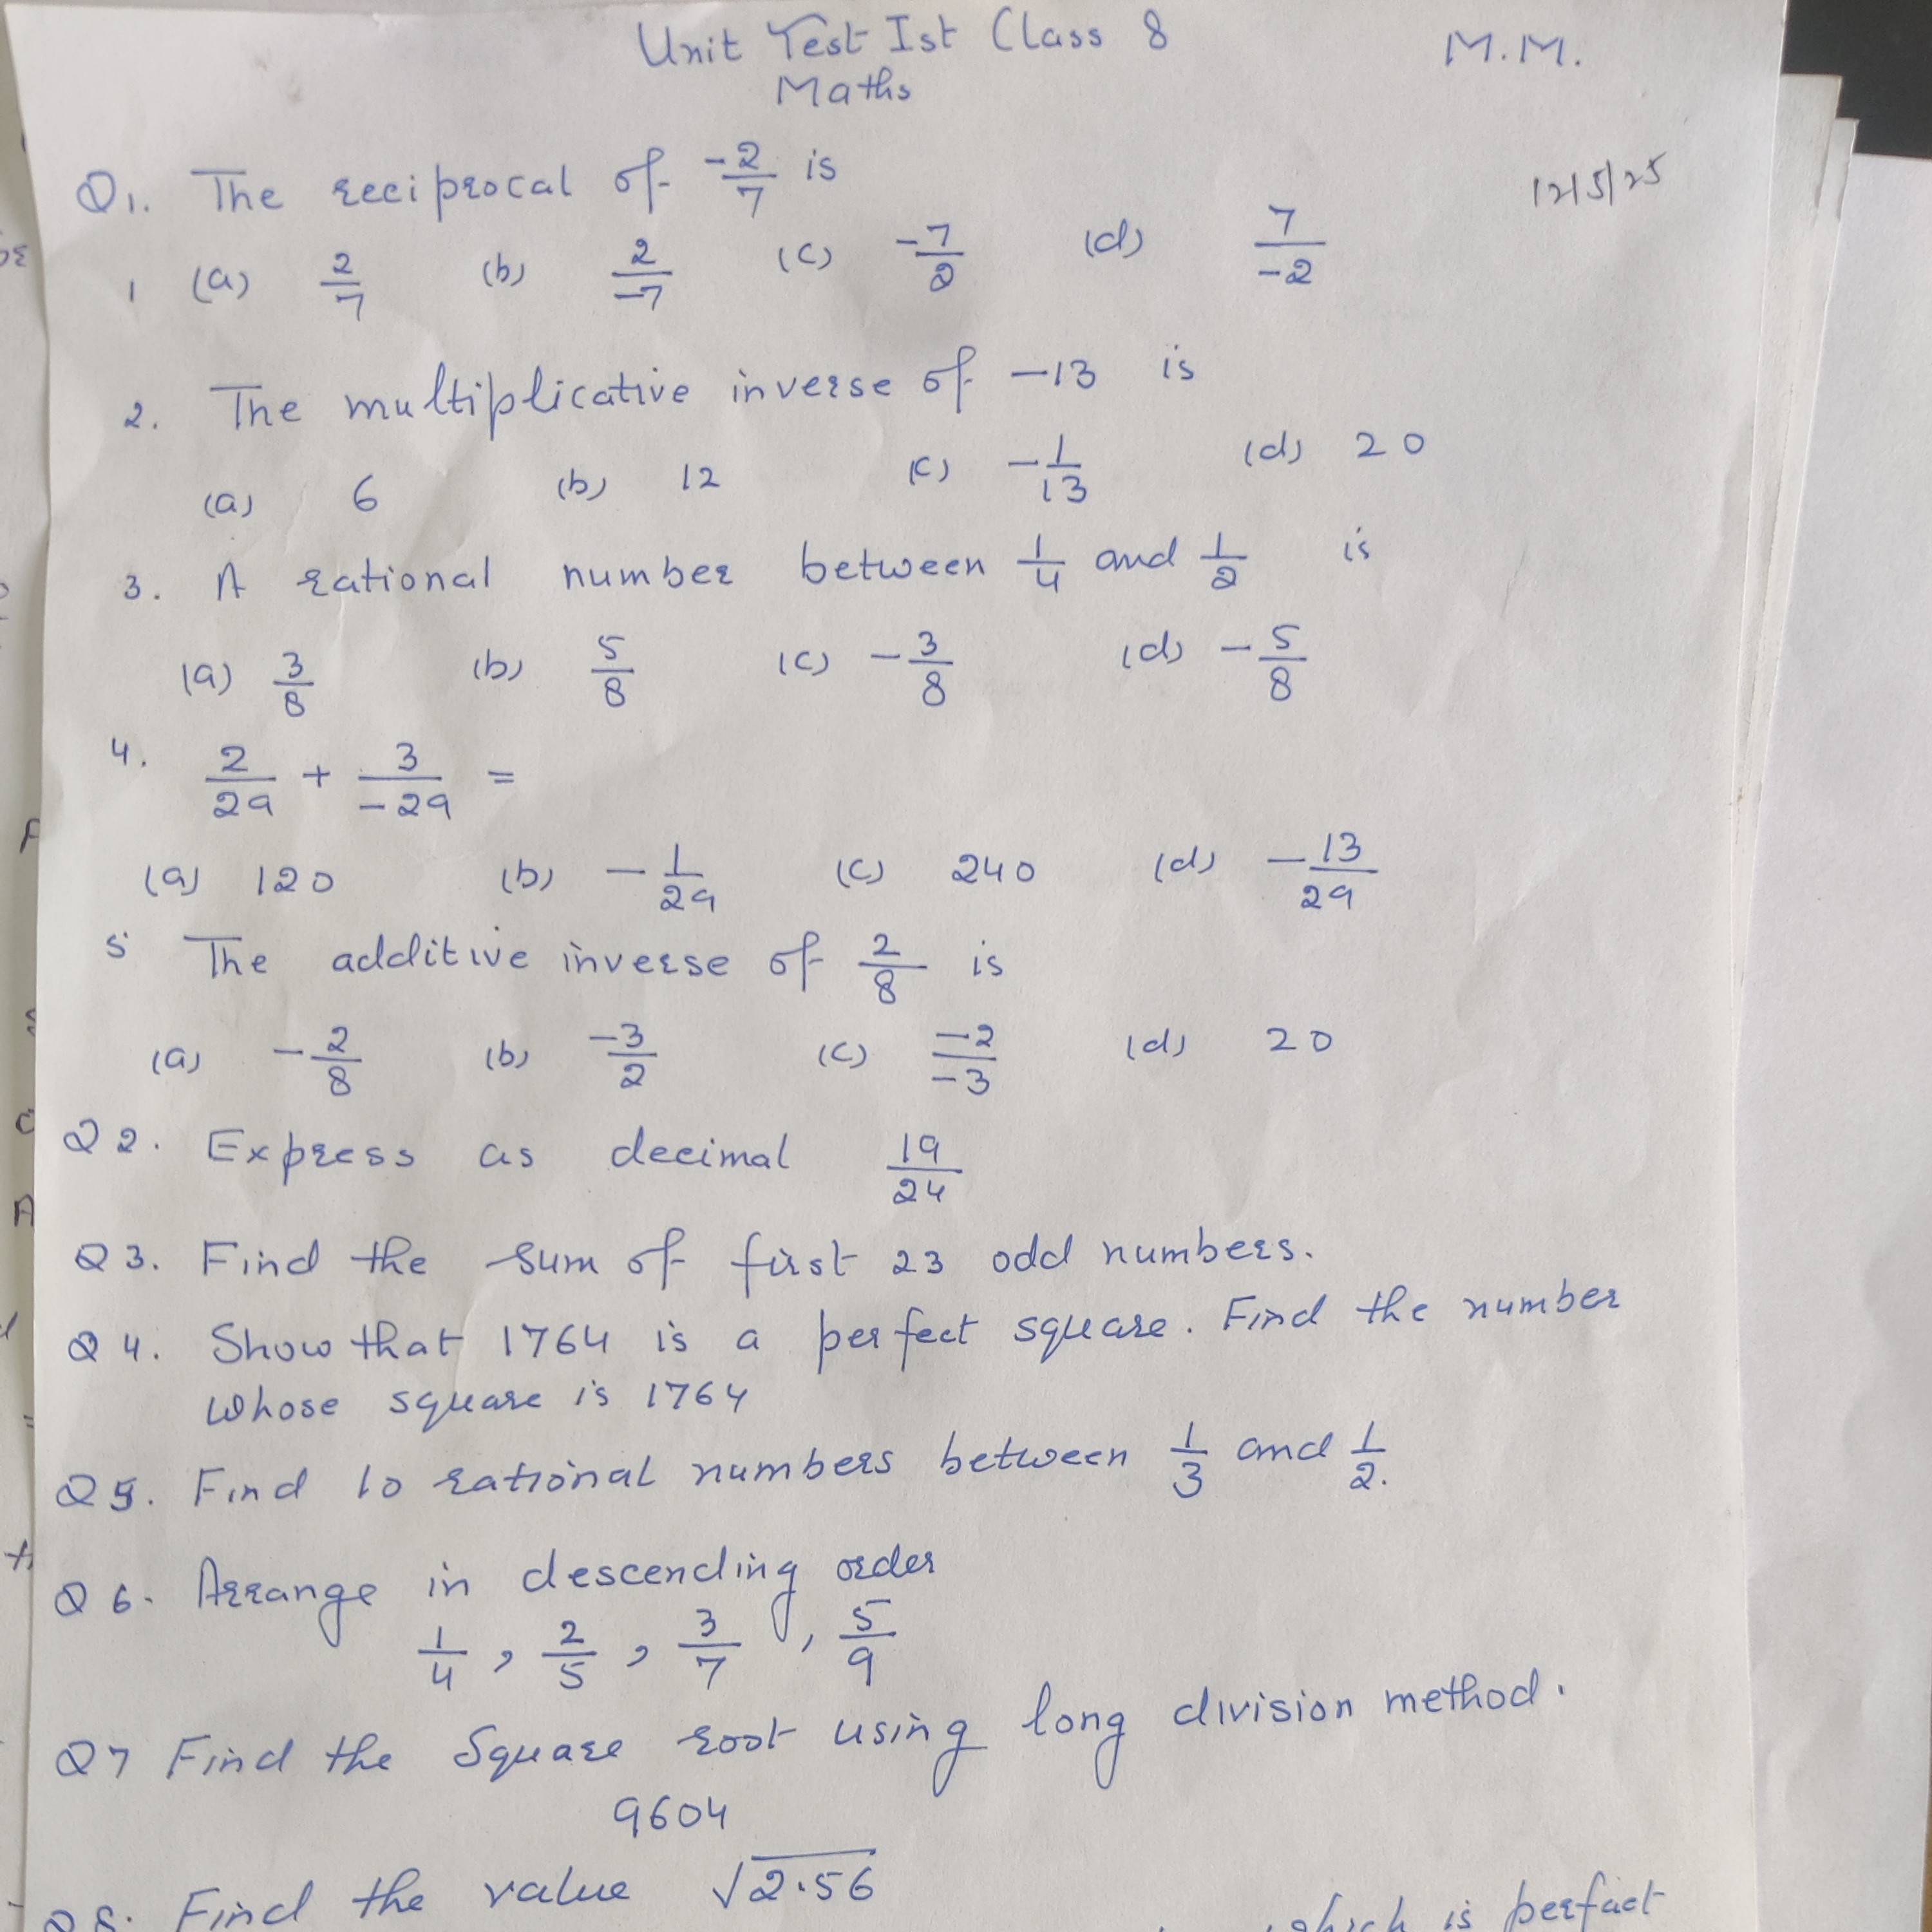 Unit Test Ist Class 8 M.M.
Maths
12/5/25
Q1. The reciprocal of -2/7 is
1 (a) 2/7 (b) 2/-7 (c) -7/2 (d) 7/-2
2. The multiplicative inverse of -13 is
(a) 6 (b) 12 (c) -1/13 (d) 20
3. A rational number between 1/4 and 1/2 is
(a) 3/8 (b) 5/8 (c) -3/8 (d) -5/8
4. 2/29 + 3/-29 =
(a) 120 (b) -1/29 (c) 240 (d) -13/29
5 The additive inverse of 2/8 is
(a) -2/8 (b) -3/2 (c) -2/-3 (d) 20
Q2. Express as decimal 19/24
Q3. Find the sum of first 23 odd numbers.
Q4. Show that 1764 is a perfect square. Find the number
whose square is 1764
Q5. Find 10 rational numbers between 1/3 and 1/2.
Q6. Arrange in descending order
1/4, 2/5, 3/7, 5/9
Q7 Find the Square root using long division method.
9604
Q8. Find the value √2.56
which is perfect